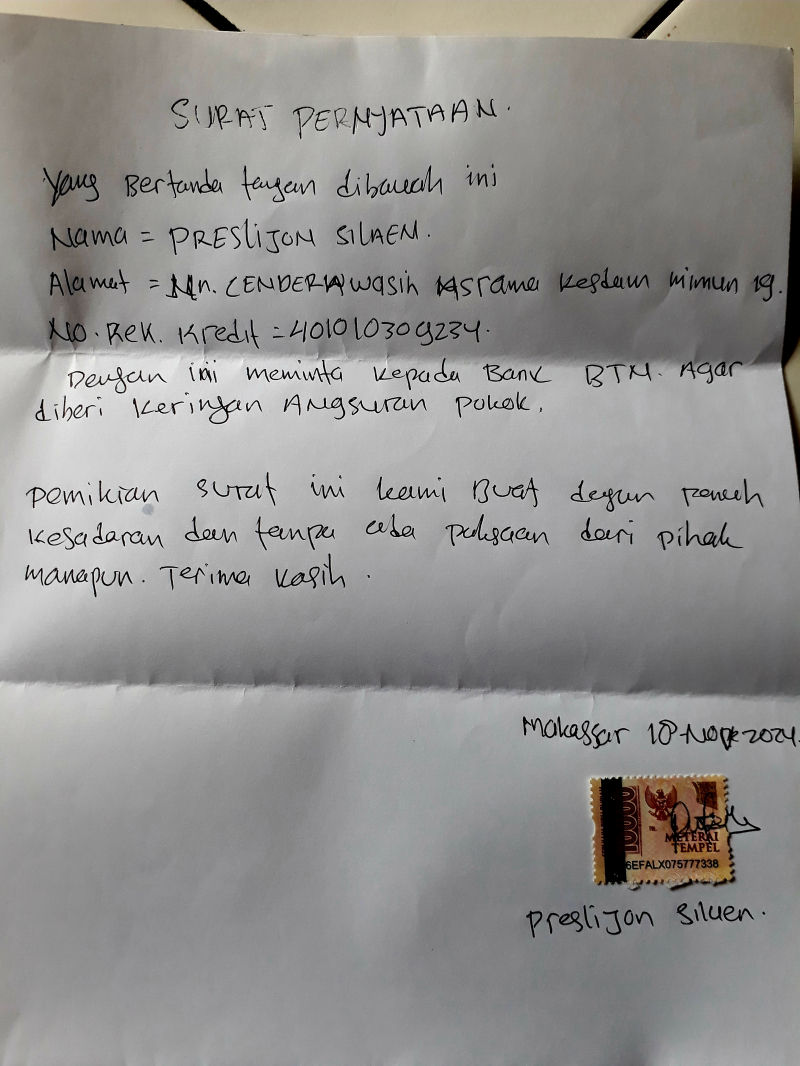 SURAT PERNYATAAN.
Yang Bertanda tangan dibawah ini
Nama = PRESLIJON SILAEN.
Alamat = Jln. CENDERAWASIH ASrama Kesdam nimun 19.
NO. Rek. Kredit = 401010309234.
Dengan ini meminta kepada Bank BTN. Agar
diberi keringan Angsuran pokok.
Demikian surat ini kami Buat degan penuh
kesadaran dan tanpa ada paksaan dari pihak
manapun. Terima kasih.
Makassar 18-Nop-2024.
10000
TGL.
METERAI
TEMPEL
6EFALX075777338
Preslijon Silaen.